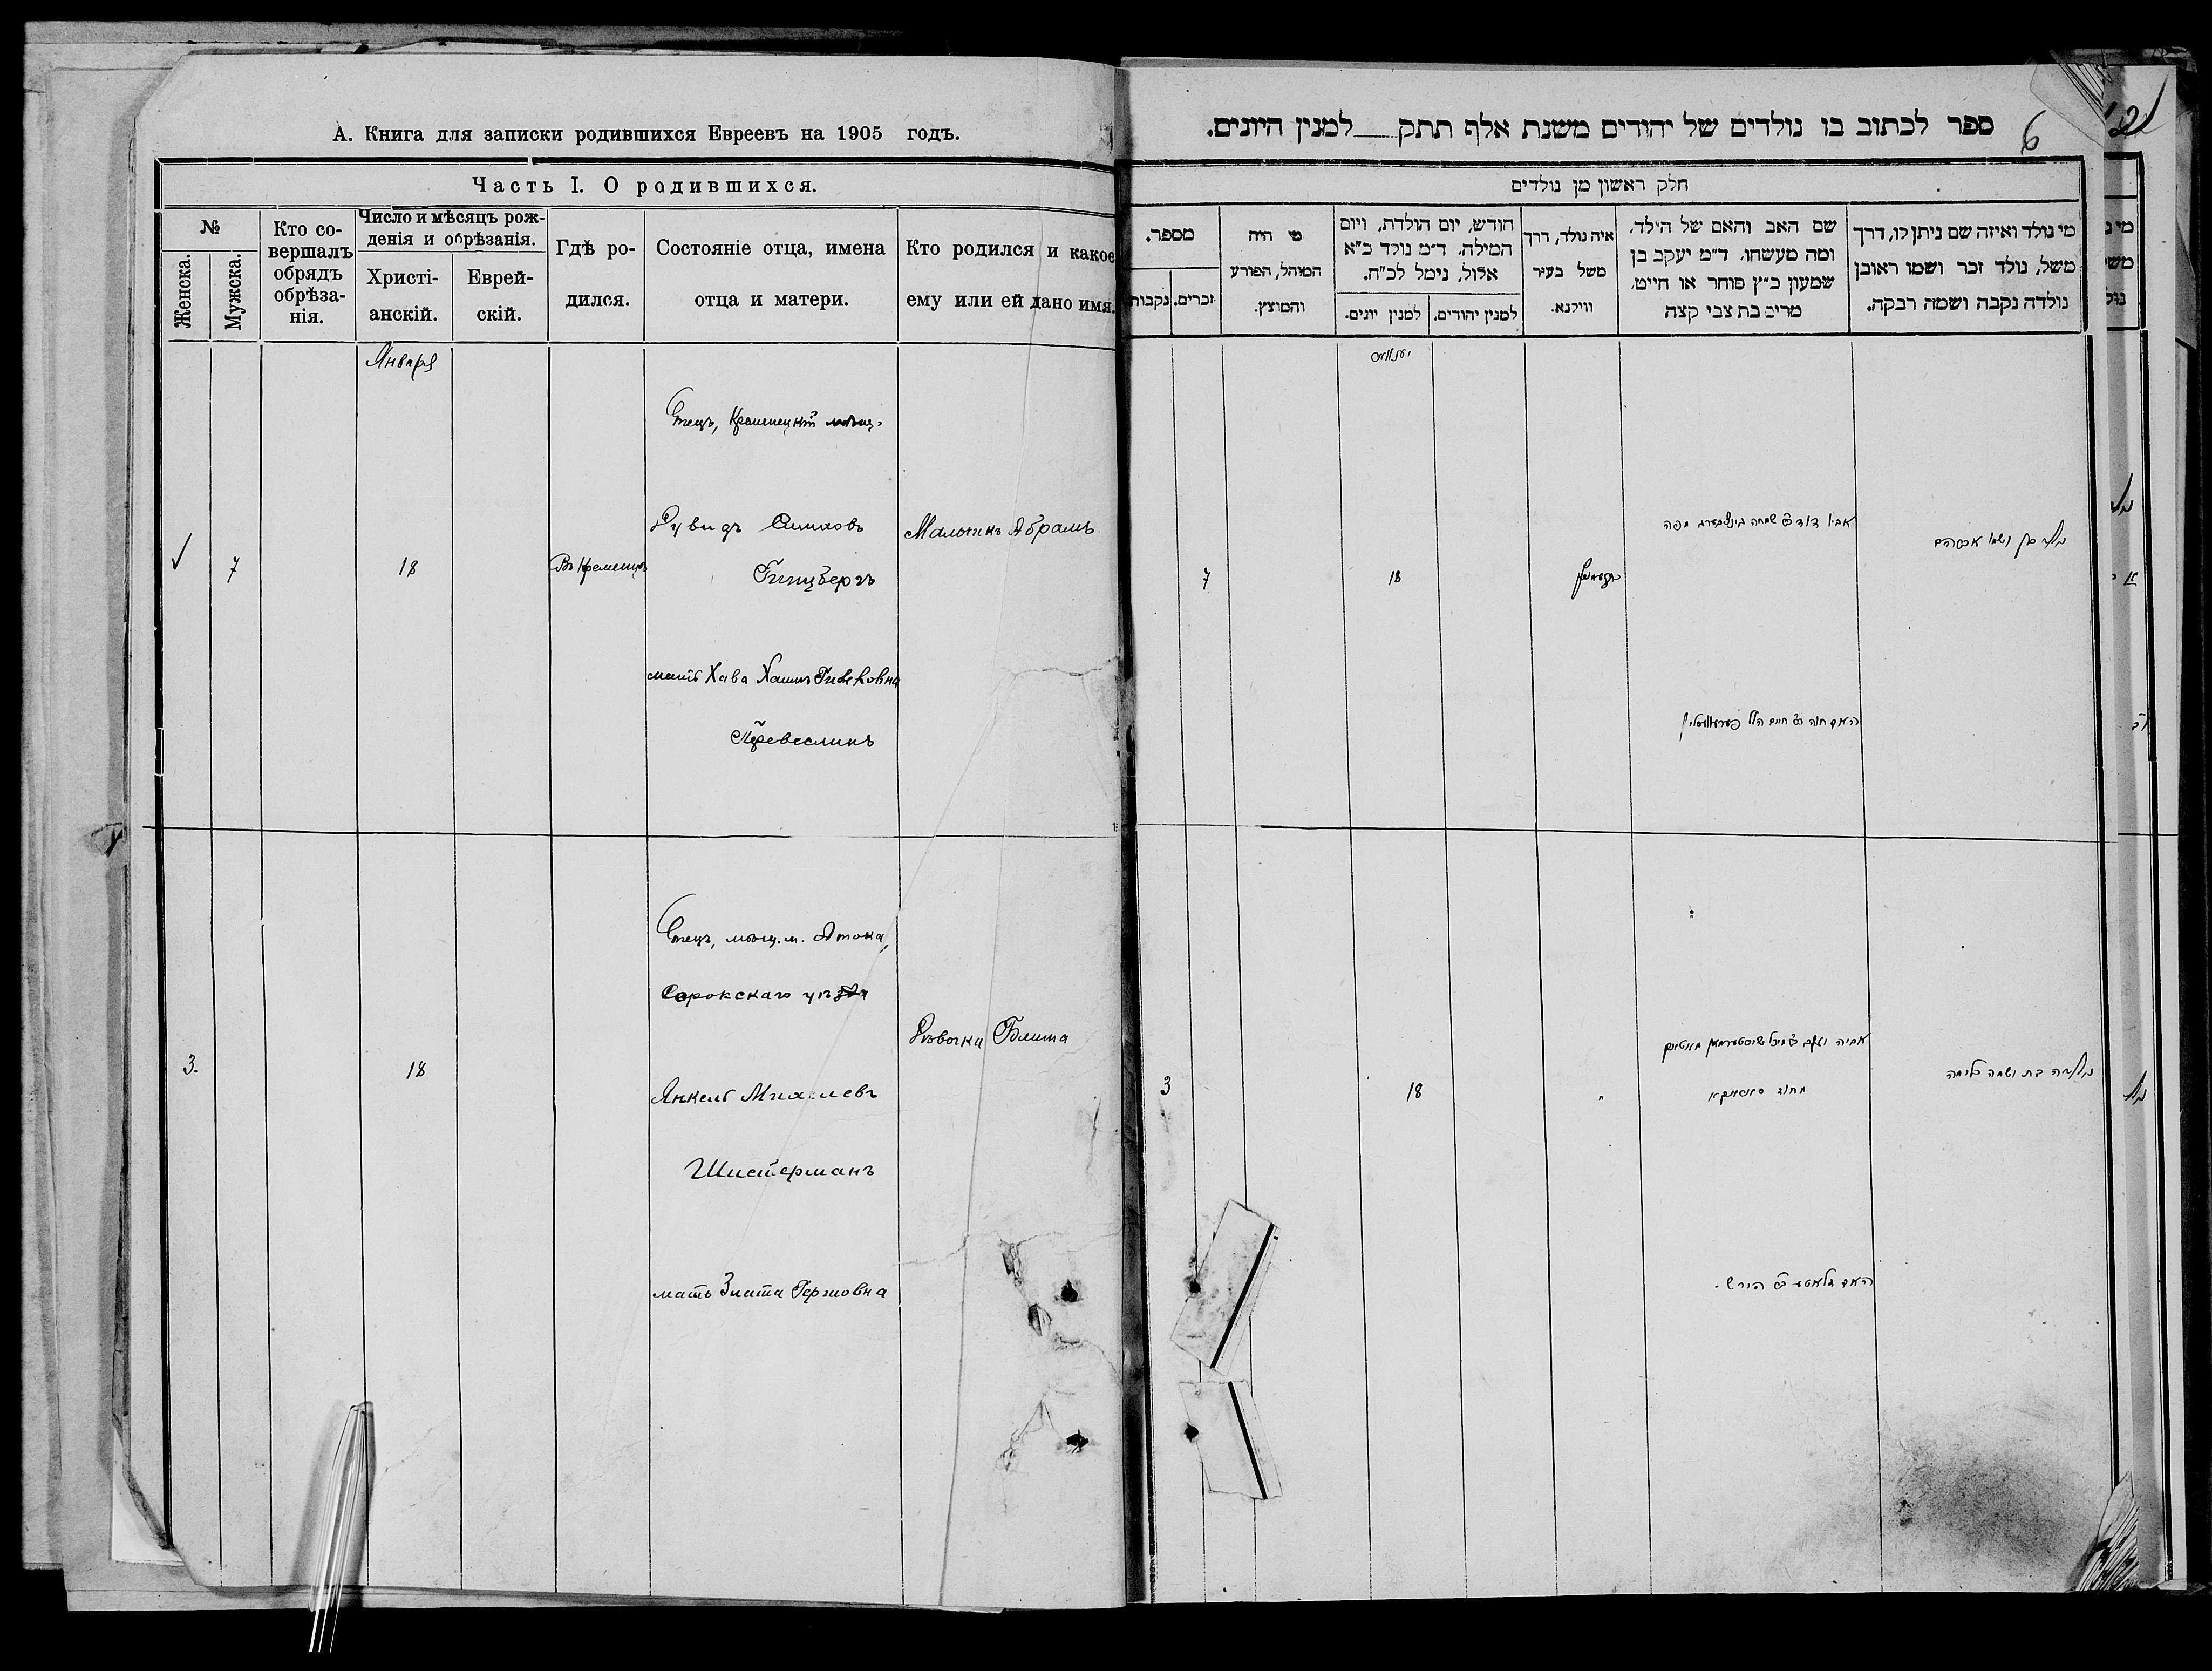 А. Книга для записки родившихся Евреевъ на 1905 годъ.
Часть I. О родившихся.
№
Женска.
Мужска.
Кто со-
вершалъ
обрядъ
обрѣза-
нія.
Число и мѣсяцъ рож-
денія и обрѣзанія.
Христі-
анскій.
Еврей-
скій.
Гдѣ ро-
дился.
Состояніе отца, имена
отца и матери.
Кто родился и какое
ему или ей дано имя.
Января
Отецъ, Кременецкій мѣщ.
Дувидъ Симховъ
Гинцбергъ
мать Хава
7
18
Въ Кременцѣ
Мальчикъ Абрамъ
Отецъ, мѣщ. м. Атака,
Сорокскаго уѣзда
Янкель
Шистерманъ
мать Злата Гершовна
3.
18
Дѣвочка Блима
ספר לכתוב בו נולדים של יהודים משנת אלף תתק למנין היונים.
6
חלק ראשון מן נולדים
מי נולד ואיזה שם ניתן לו, דרך
משל, נולד זכר ושמו ראובן
נולדה נקבה ושמה רבקה.
שם האב והאם של הילד,
ומה מעשהו, ד״מ יעקב בן
שמעון כ״ץ סוחר או חייט,
מרים בת צבי קצה
איה נולד, דרך
משל בעיר
ווילנא.
חודש, יום הולדת, ויום
המילה, ד״מ נולד כ״א
אלול, נימל לכ״ח.
למנין יהודים.
למנין יונים.
מי היה
המוהל, הפורע
והמוצץ.
מספר.
זכרים.
נקבות
יענואר
נולד בן ושמו אברהם
אביו דוד ב״ר שמחה גינצבערג מפה
האם חוה ב״ר חיים הלל
18
7
נולדה בת ושמה בלימה
האם זלאטע ב״ר הירש
18
3